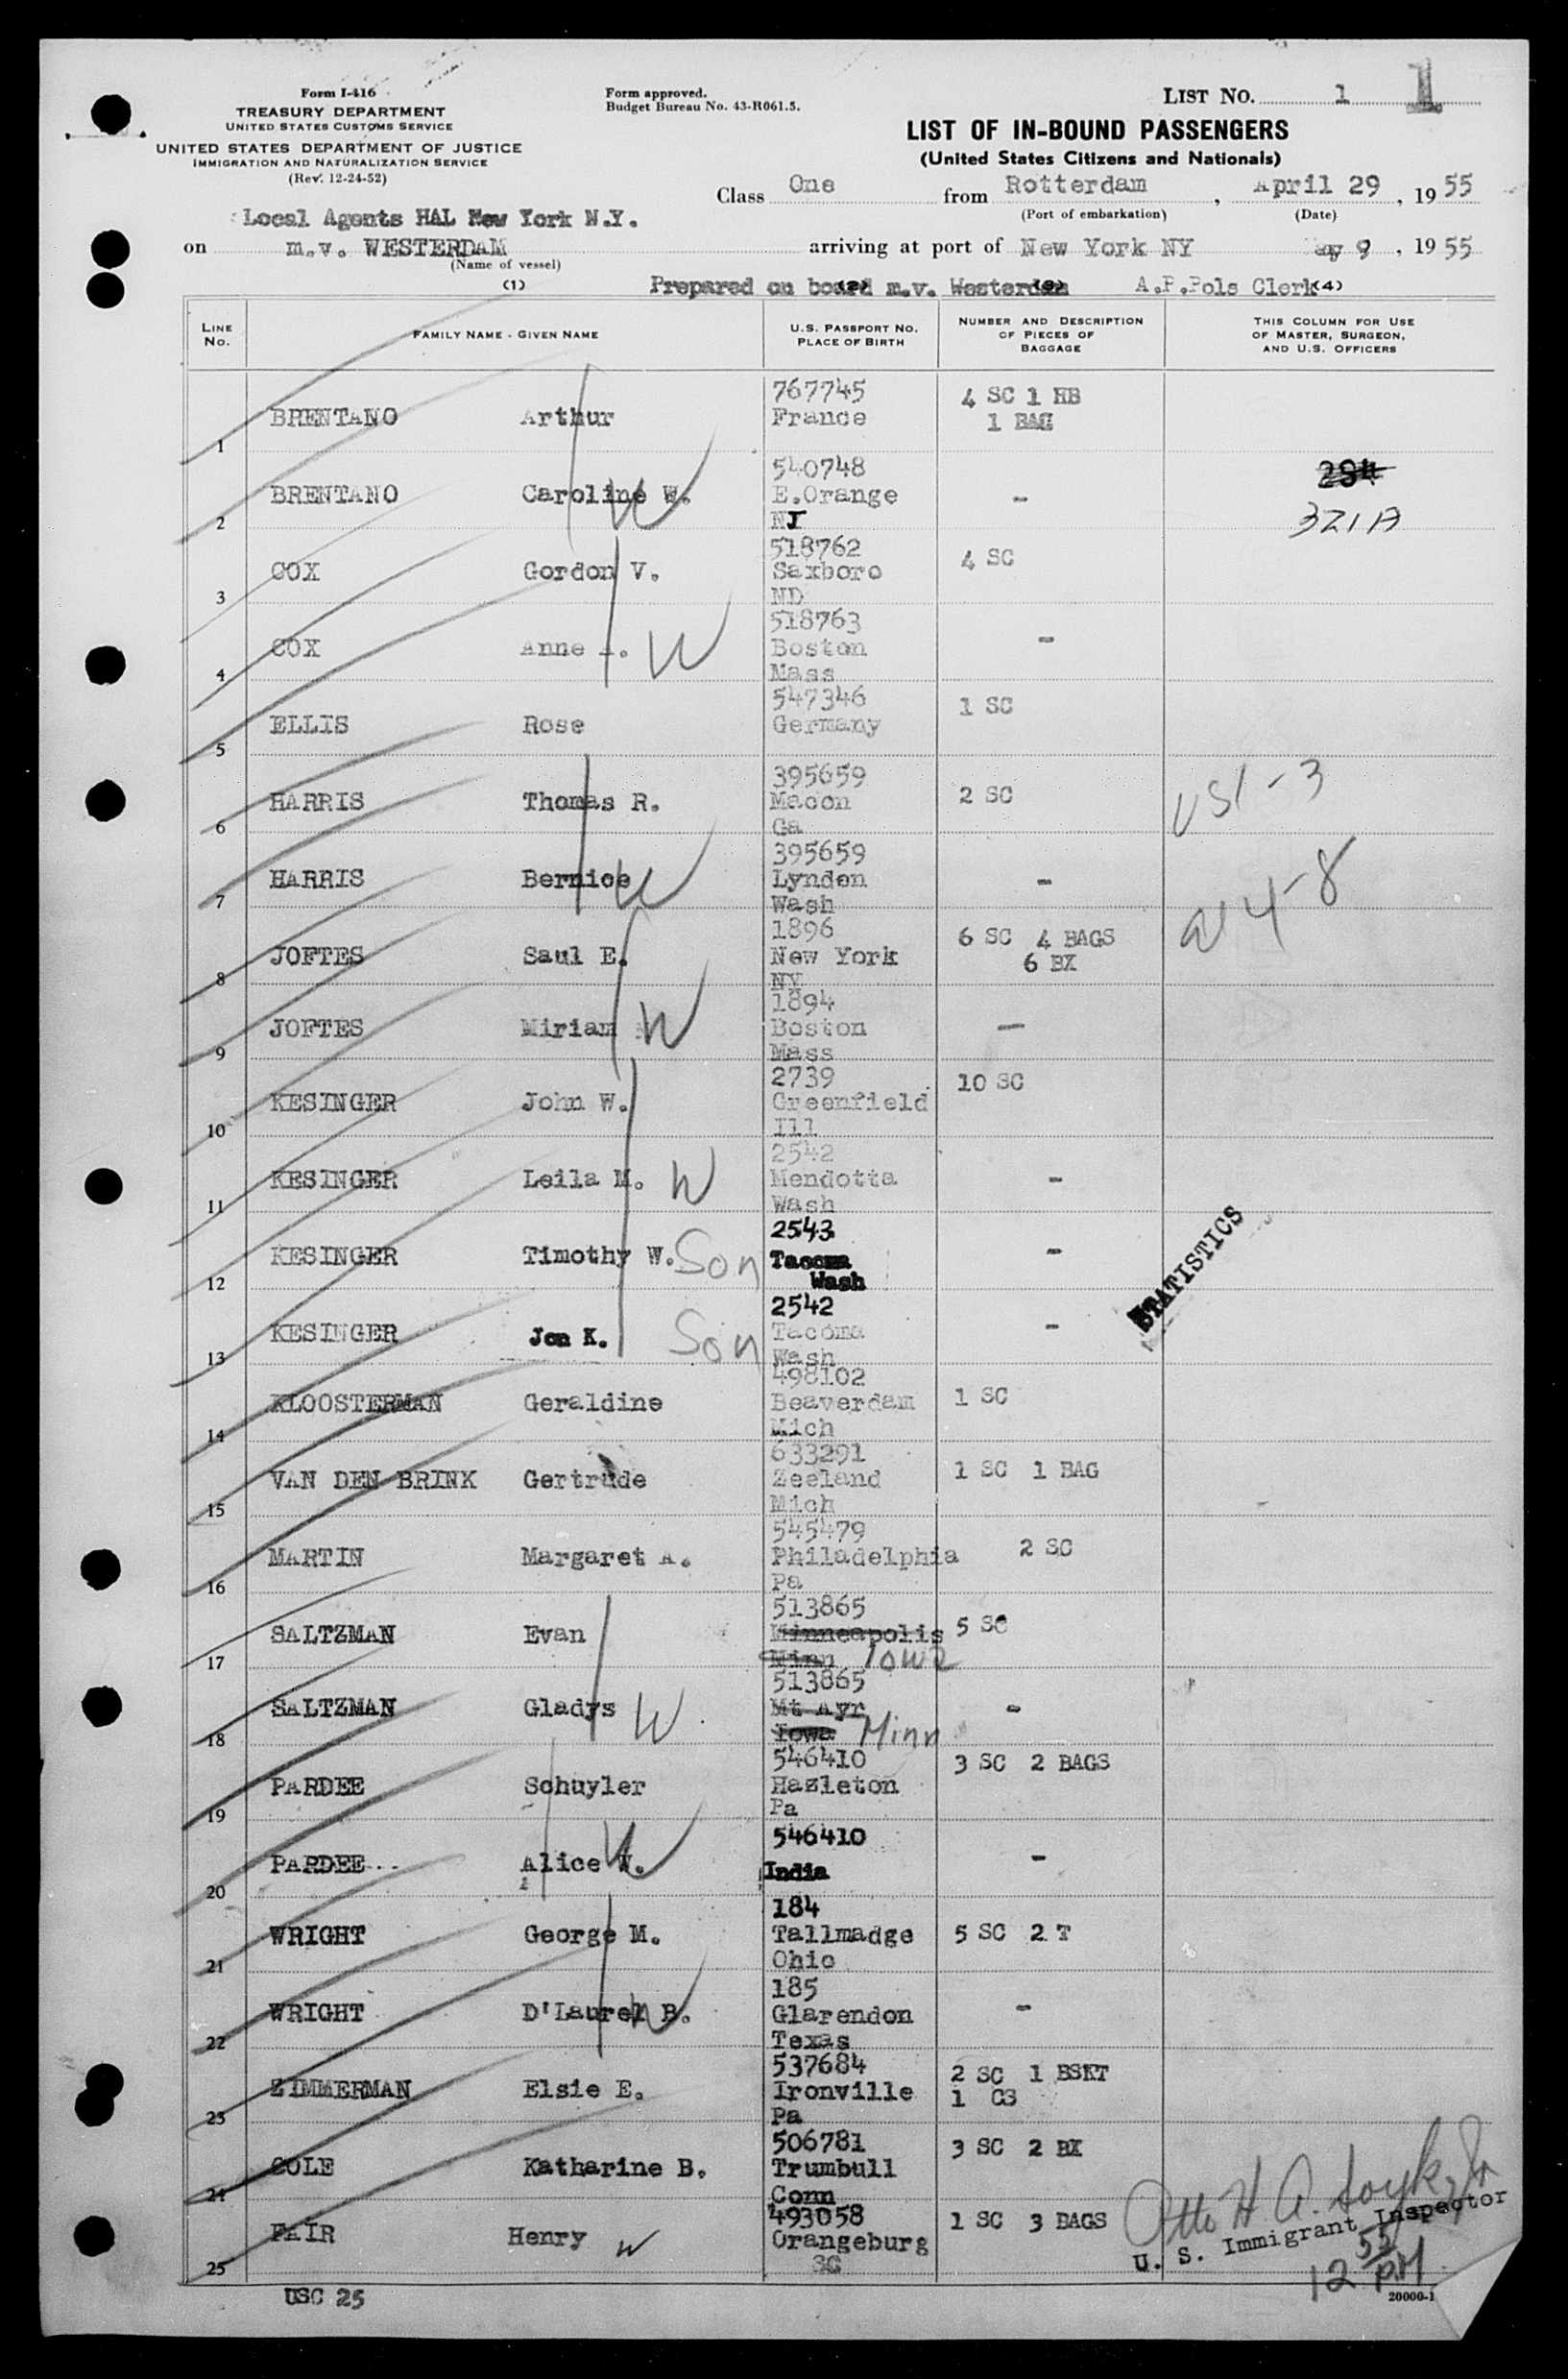 Form I-416
TREASURY DEPARTMENT
UNITED STATES CUSTOMS SERVICE
UNITED STATES DEPARTMENT OF JUSTICE
IMMIGRATION AND NATURALIZATION SERVICE
(Rev. 12-24-52)
Form approved.
Budget Bureau No. 43-R061.5.
LIST NO. 1 1
LIST OF IN-BOUND PASSENGERS
(United States Citizens and Nationals)
Class One from Rotterdam , April 29 , 19 55
(Port of embarkation) (Date)
Local Agents HAL New York N.Y.
on m.v. WESTERDAM arriving at port of New York NY May 9 , 19 55
(Name of vessel)
Prepared on board m.v. Westerdam A.P.Pols Clerk
(1) (2) (3) (4)
LINE NO. FAMILY NAME - GIVEN NAME U.S. PASSPORT NO. PLACE OF BIRTH NUMBER AND DESCRIPTION OF PIECES OF BAGGAGE THIS COLUMN FOR USE OF MASTER, SURGEON, AND U.S. OFFICERS
1 BRENTANO Arthur 767745 France 4 SC 1 HB 1 BAG
2 BRENTANO Caroline W. W 540748 E.Orange NJ - 284 321A
3 COX Gordon V. 518762 Saxboro ND 4 SC
4 COX Anne W 518763 Boston Mass -
5 ELLIS Rose 547346 Germany 1 SC
6 HARRIS Thomas R. 395659 Macon Ga 2 SC USI-3
7 HARRIS Bernice W 395659 Lynden Wash - 4-8
8 JOFTES Saul E. 1896 New York NY 6 SC 4 BAGS 6 BX
9 JOFTES Miriam W 1894 Boston Mass -
10 KESINGER John W. 2739 Greenfield Ill 10 SC
11 KESINGER Leila M. W 2542 Mendotta Wash -
12 KESINGER Timothy W. Son 2543 Tacoma Wash -
STATISTICS
13 KESINGER Jon K. Son 2542 Tacoma Wash -
14 KLOOSTERMAN Geraldine 498102 Beaverdam Mich 1 SC
15 VAN DEN BRINK Gertrude 633291 Zeeland Mich 1 SC 1 BAG
16 MARTIN Margaret A. 545479 Philadelphia Pa 2 SC
17 SALTZMAN Evan 513865 Minneapolis Minn Iowa 5 SC
18 SALTZMAN Gladys W 513865 Mt Ayr Iowa Minn -
19 PARDEE Schuyler 546410 Hazleton Pa 3 SC 2 BAGS
20 PARDEE Alice W 546410 India -
21 WRIGHT George M. 184 Tallmadge Ohio 5 SC 2 T
22 WRIGHT D'Laurel B. W 185 Glarendon Texas -
23 ZIMMERMAN Elsie E. 537684 Ironville Pa 2 SC 1 BSKT 1 CS
24 COLE Katharine B. 506781 Trumbull Conn 3 SC 2 BX
25 FAIR Henry W 493058 Orangeburg SC 1 SC 3 BAGS
Otto H. A.
U. S. Immigrant Inspector
12 55 P.M
USC 25
20000-1